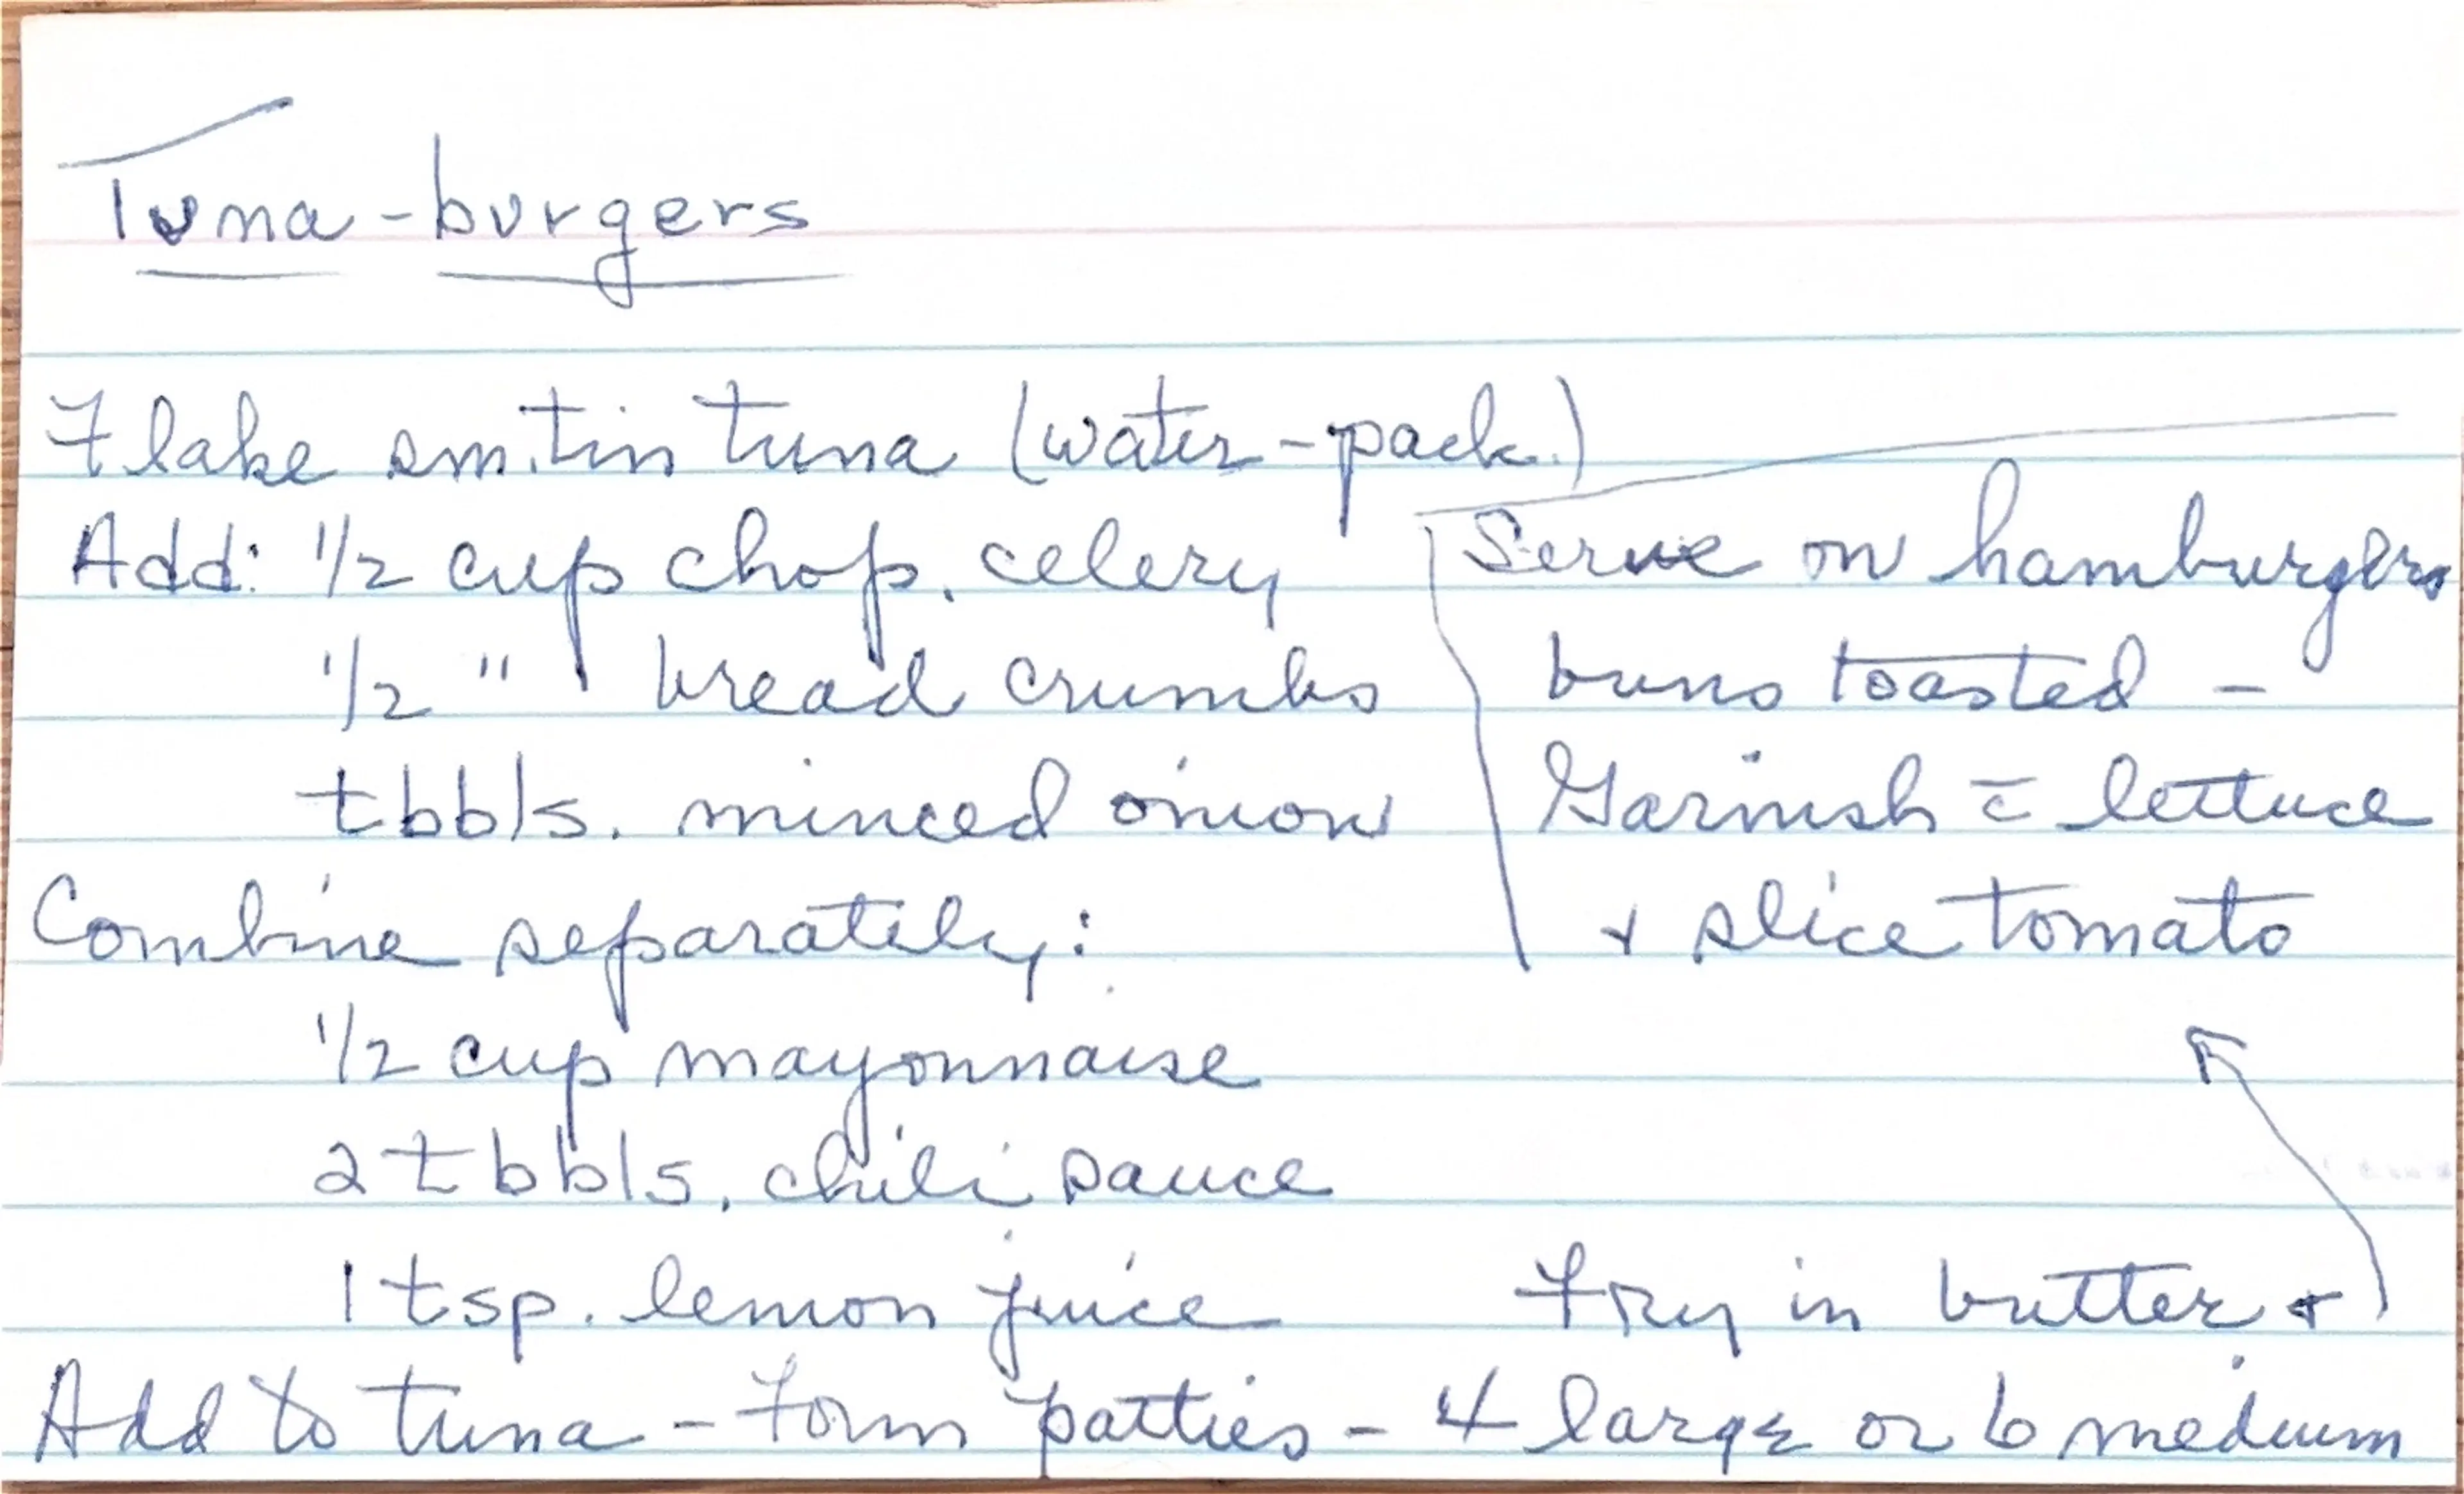 Tuna-burgers
Flake sm. tin tuna (water-pack.)
Add: 1/2 cup chop. celery
1/2 " bread crumbs
tbbls. minced onion
Combine separately:
1/2 cup mayonnaise
2 tbbls. chili sauce
1 tsp. lemon juice
Add to tuna - Form patties - 4 large or 6 medium
Fry in butter +
Serve on hamburgers
buns toasted -
Garnish c̄ lettuce
+ slice tomato